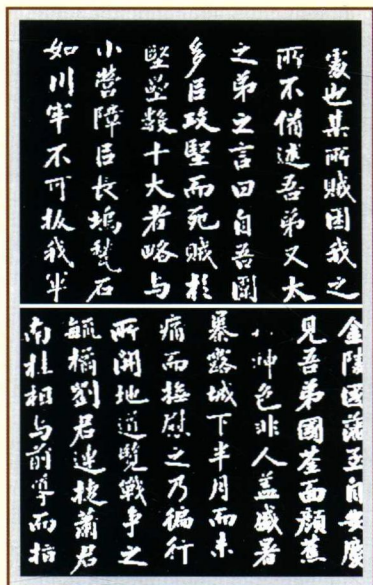 處也其所賊困我之
所不備述吾弟又大
之弟之言曰自吾圍
多㠯攻堅而死賊於
堅壘數十大者略与
小營障㠯長塢甃石
如川牢不可拔我軍
金陵國藩至自安慶
見吾弟國荃面顏蕉
神色非人蓋盛暑
暴露城下半月而未
痛而撫慰之乃徧行
所開地道覽戰爭之
毓橘劉君連捷蕭君
南桂相与前導而指